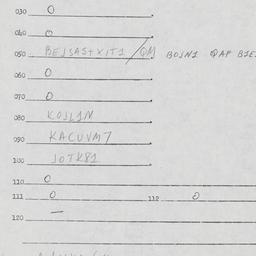 030 0
040 0
050 BEJSAS+XIT1/QM BOJN1 QAF
060 0
070 0
080 KOJL1M
090 KACUVM7
100 JOTK81
110 0
111 0 112 0
120 —